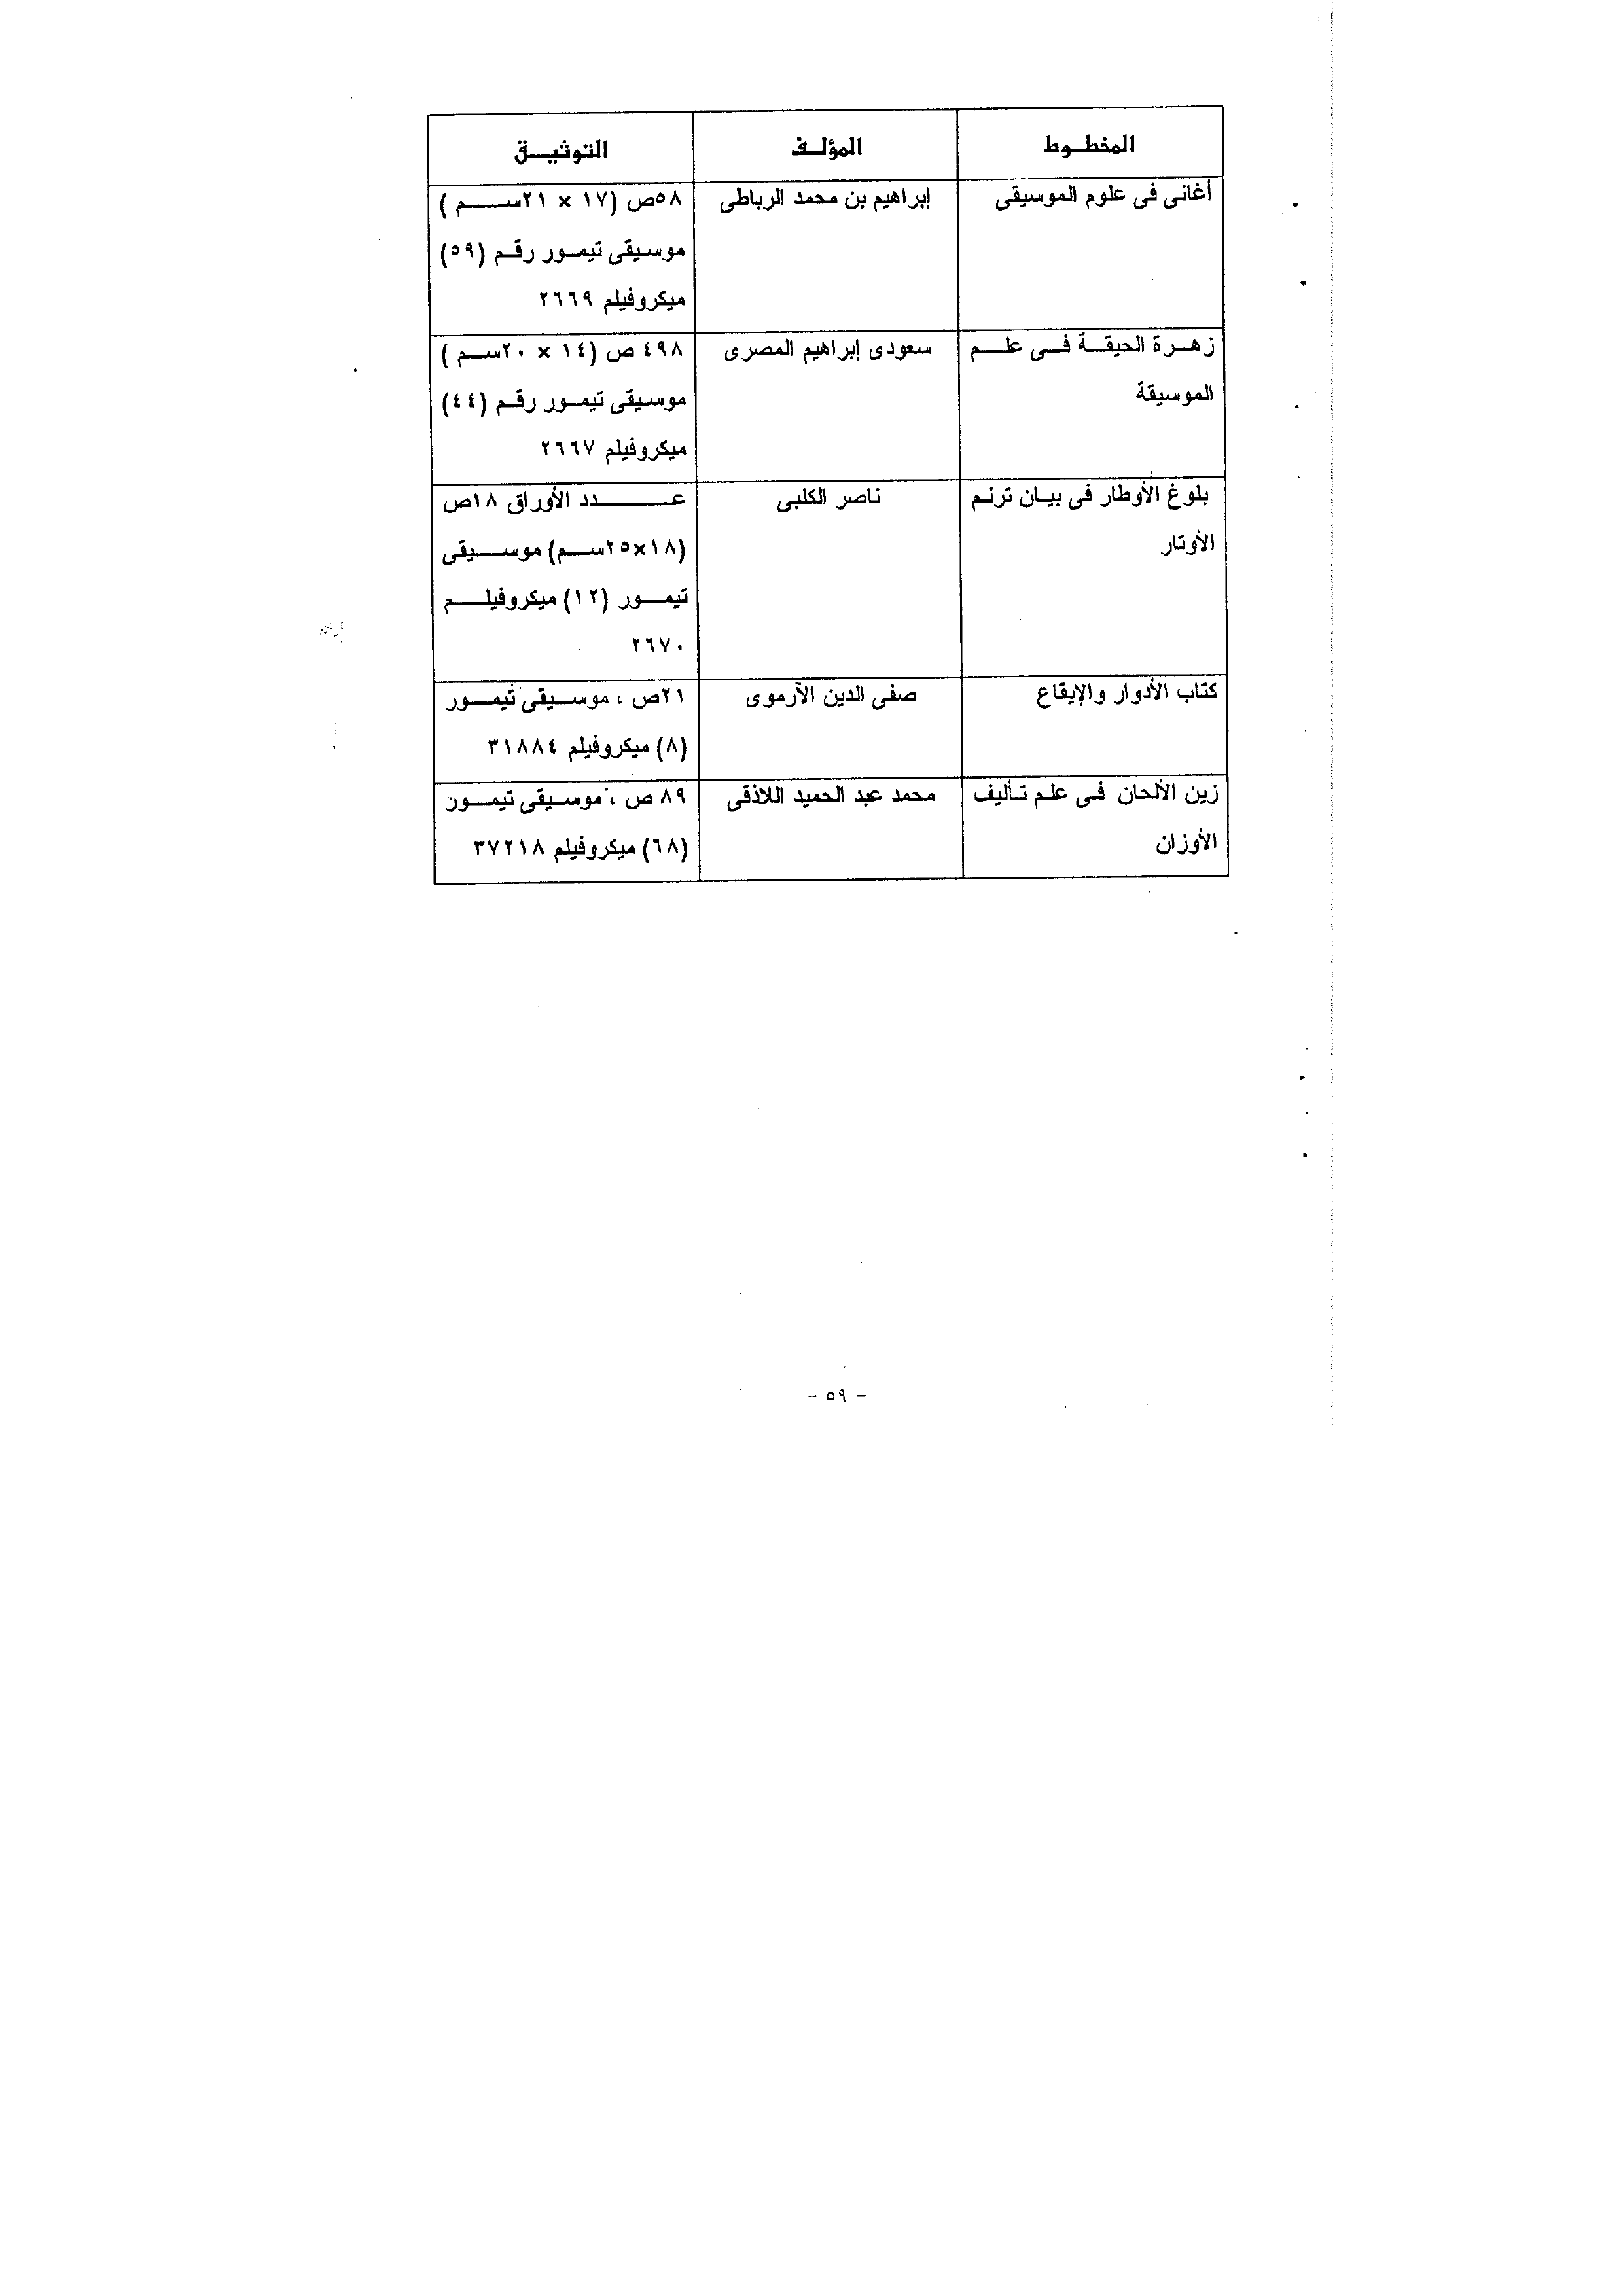 المخطوط المؤلف التوثيق
أغانى فى علوم الموسيقى إبراهيم بن محمد الرباطى ٥٨ص (١٧ × ٢١سم )
موسيقى تيمور رقم (٥٩)
ميكروفيلم ٢٦٦٩
زهرة الحيقة فى علم سعودى إبراهيم المصرى ٤٩٨ ص (١٤ × ٢٠سم )
الموسيقة موسيقى تيمور رقم (٤٤)
ميكروفيلم ٢٦٦٧
بلوغ الأوطار فى بيان ترنم ناصر الكلبى عدد الأوراق ١٨ص
الأوتار (١٨×٢٥سم) موسيقى
تيمور (١٢) ميكروفيلم
٢٦٧٠
كتاب الأدوار والإيقاع صفى الدين الآرموى ٢١ص ، موسيقى تيمور
(٨) ميكروفيلم ٣١٨٨٤
زين الألحان فى علم تأليف محمد عبد الحميد اللاذقى ٨٩ ص ، موسيقى تيمور
الأوزان (٦٨) ميكروفيلم ٣٧٢١٨
- ٥٩ -